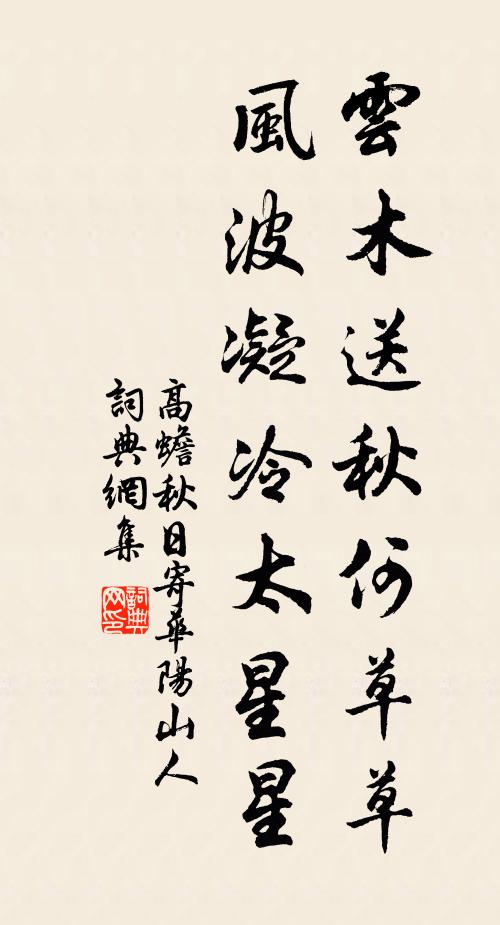 雲木送秋何草草
風波凝冷太星星
高蟾秋日寄華陽山人
詞典網集
詞典
网印